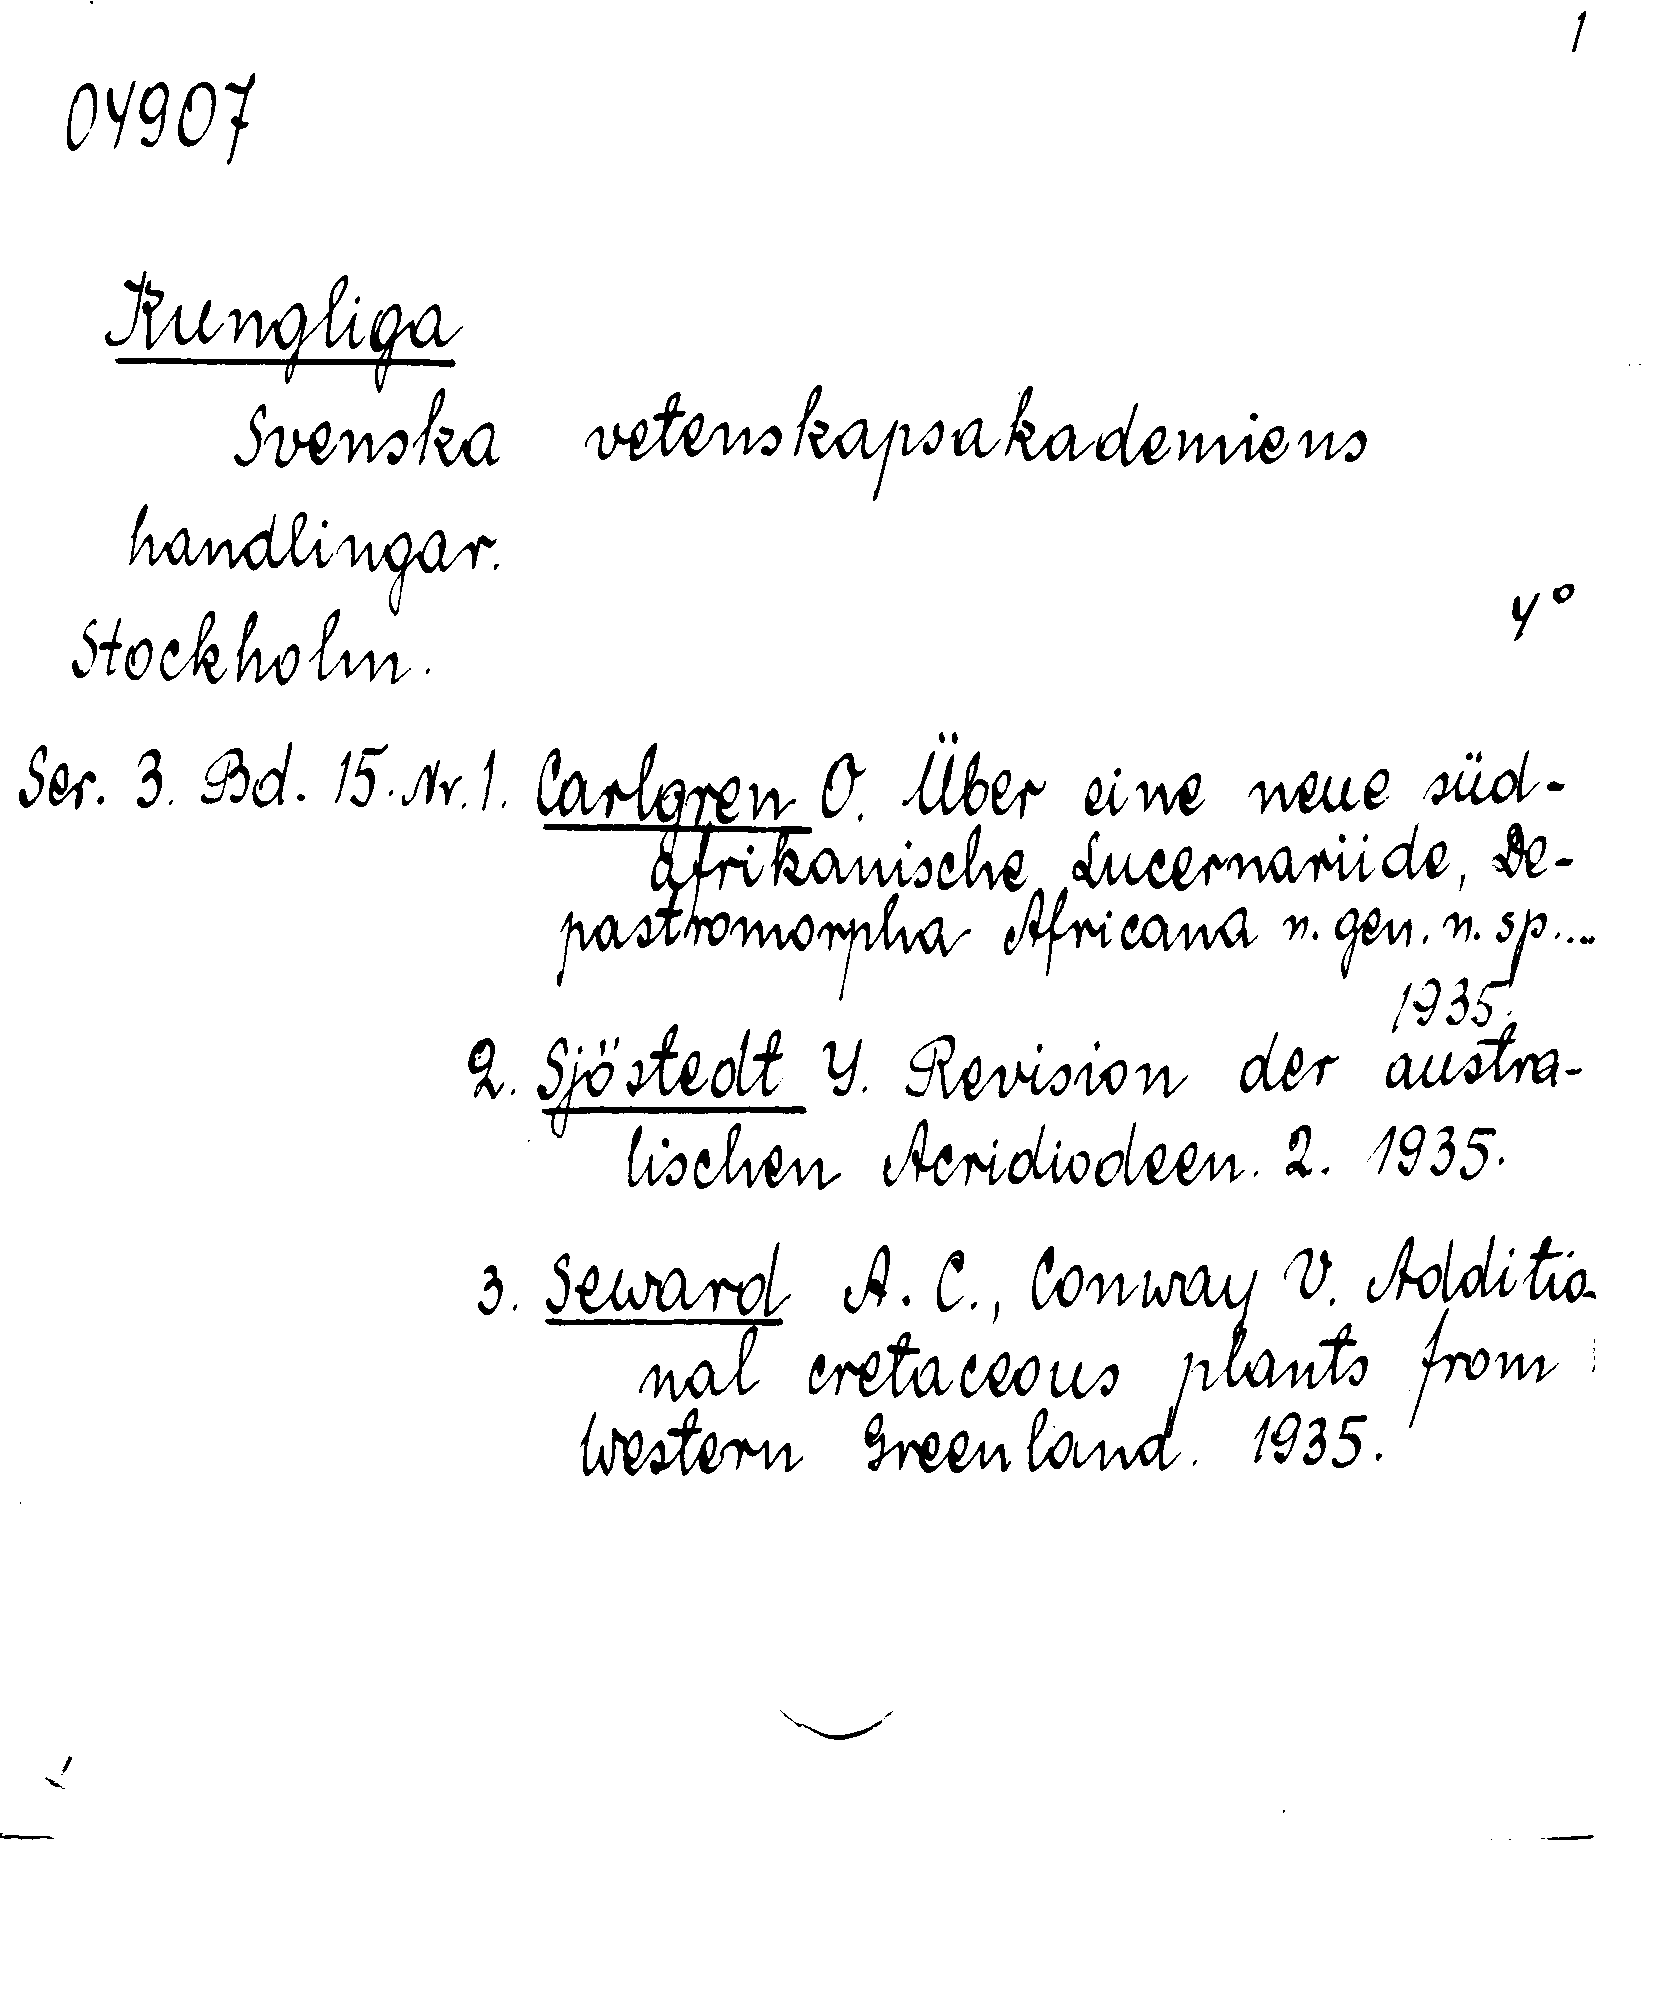 1
04907
Kungliga
Svenska vetenskapsakademiens
handlingar.
Stockholm. 4°
Ser. 3. Bd. 15. Nr. 1. Carlgren O. Über eine neue süd-
afrikanische Lucernariide, De-
pastromorpha Africana n. gen. n. sp....
1935.
2. Sjöstedt Y. Revision der austra-
lischen Acridiodeen. 2. 1935.
3. Seward A. C., Conway V. Additio-
nal cretaceous plants from
Western Greenland. 1935.